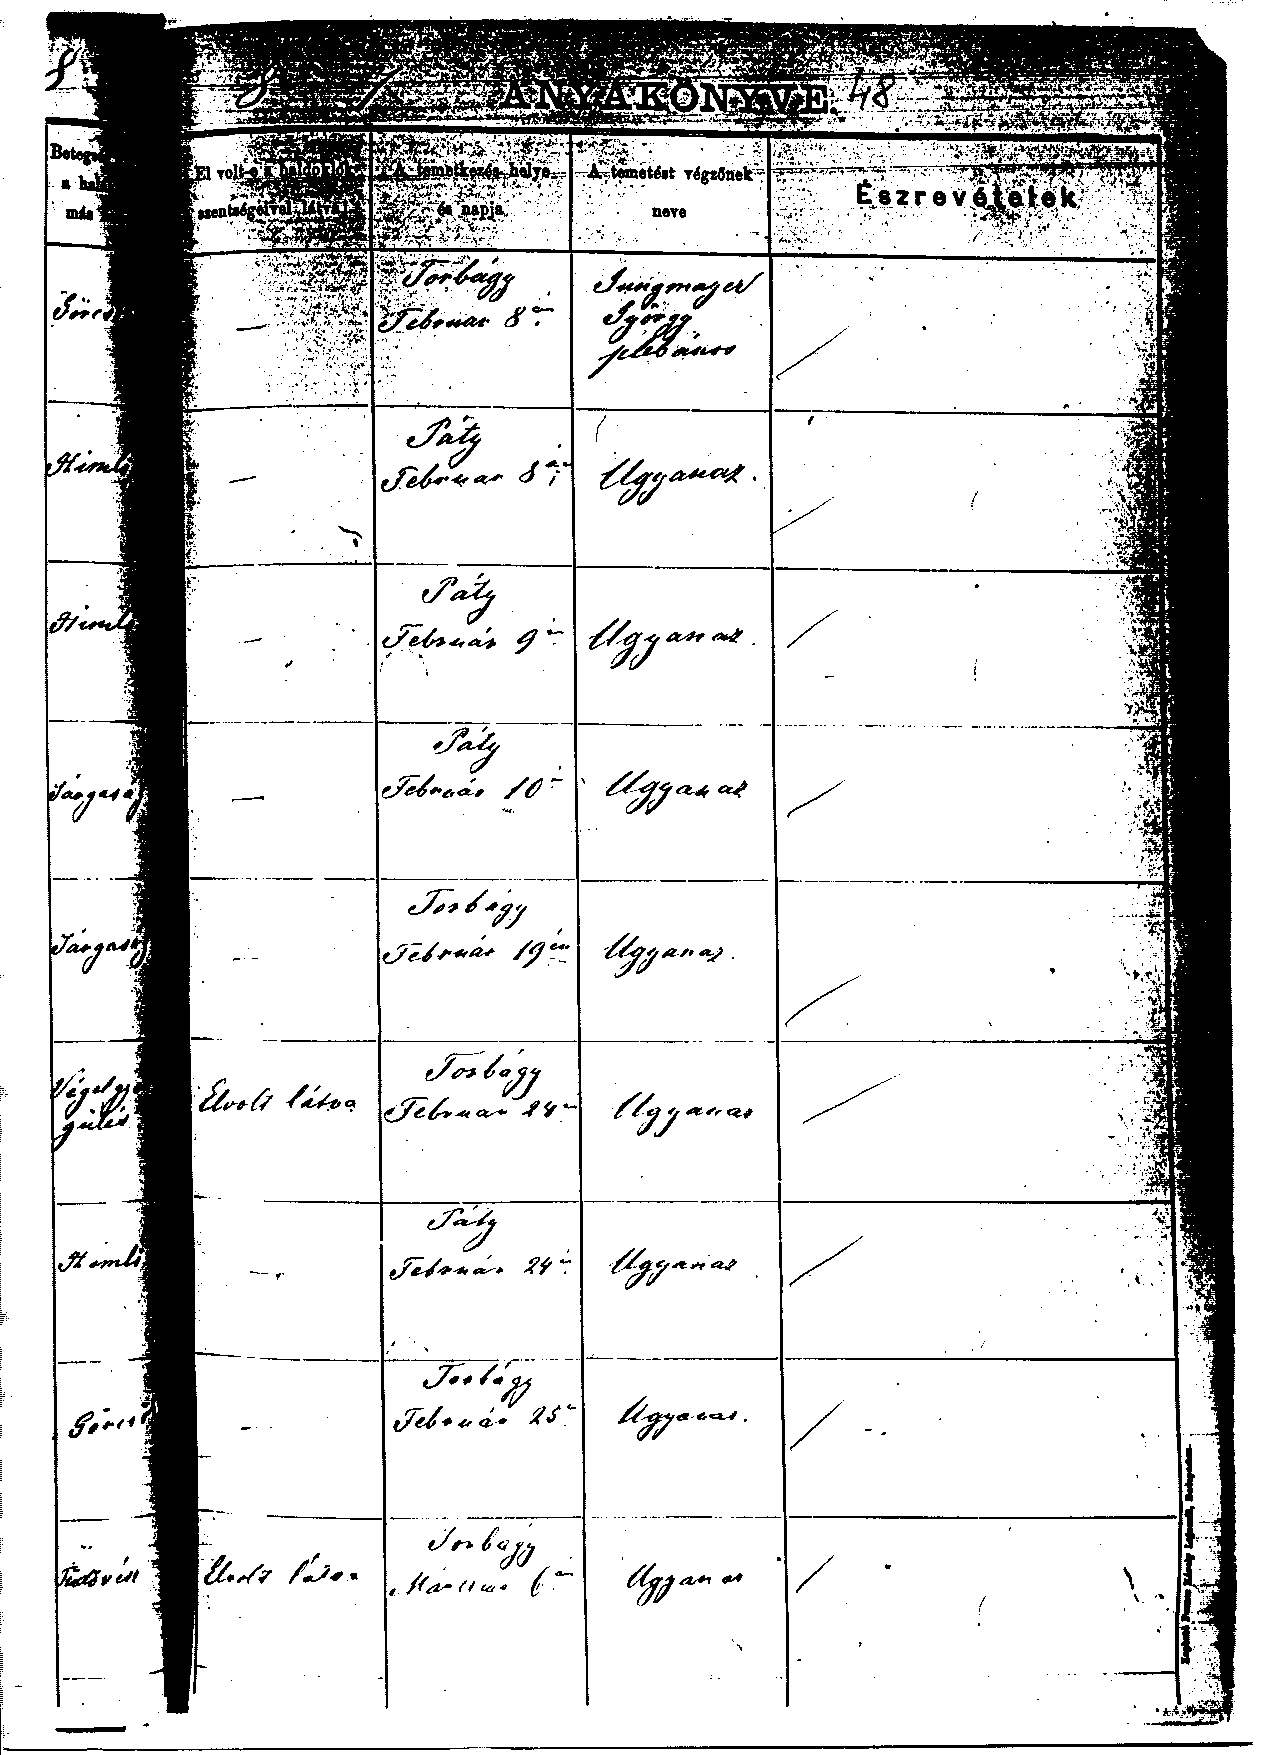 8
8
ANYAKÖNYVE. 48
Beteg
a hal
más
El volt-e a haldoklók
szentségeivel látva
A temetkezés helye
és napja
A temetést végzőnek
neve
Észrevételek
Görcs
—
Torbágy
Februar 8án
Jungmayer
György
plébános
Himlő
—
Páty
Februar 8án
Ugyanaz.
Himlő
—
Páty
Február 9én
Ugyanaz.
Sárgaság
—
Páty
Február 10én
Ugyanaz
Sárgaság
—
Torbágy
Február 19én
Ugyanaz.
Végelgyen
gülés
Elvolt látva
Torbágy
Februar 24én
Ugyanaz
Himlő
—
Páty
Február 24én
Ugyanaz
Görcs
—
Torbágy
Február 25én
Ugyanaz.
Tüdővész
Elvolt látva
Torbágy
Martius 6án
Ugyanaz